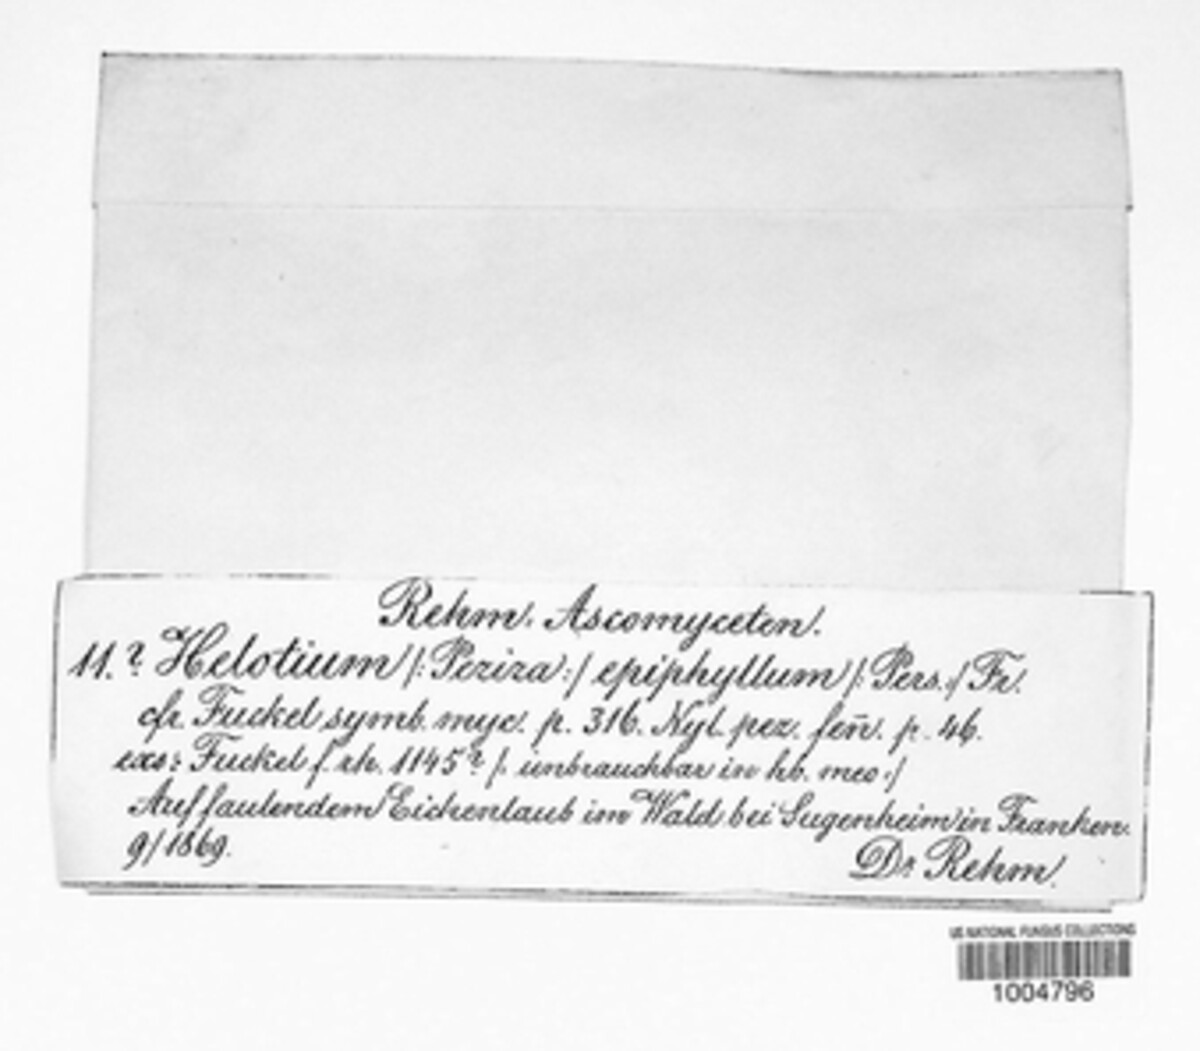 Rehm. Ascomyceten.
11.? Helotium /: Peziza :/ epiphyllum /: Pers. :/ Fr.
cfr. Fuckel symb. myc. p. 316. Nyl. pez. fen̄. p. 46.
exs: Fuckel f. rh. 1145? /: unbrauchbar in hb. meo :/
Auf faulendem Eichenlaub im Wald bei Sugenheim in Franken.
9/1869.
Dr. Rehm.
US NATIONAL FUNGUS COLLECTIONS
1004796